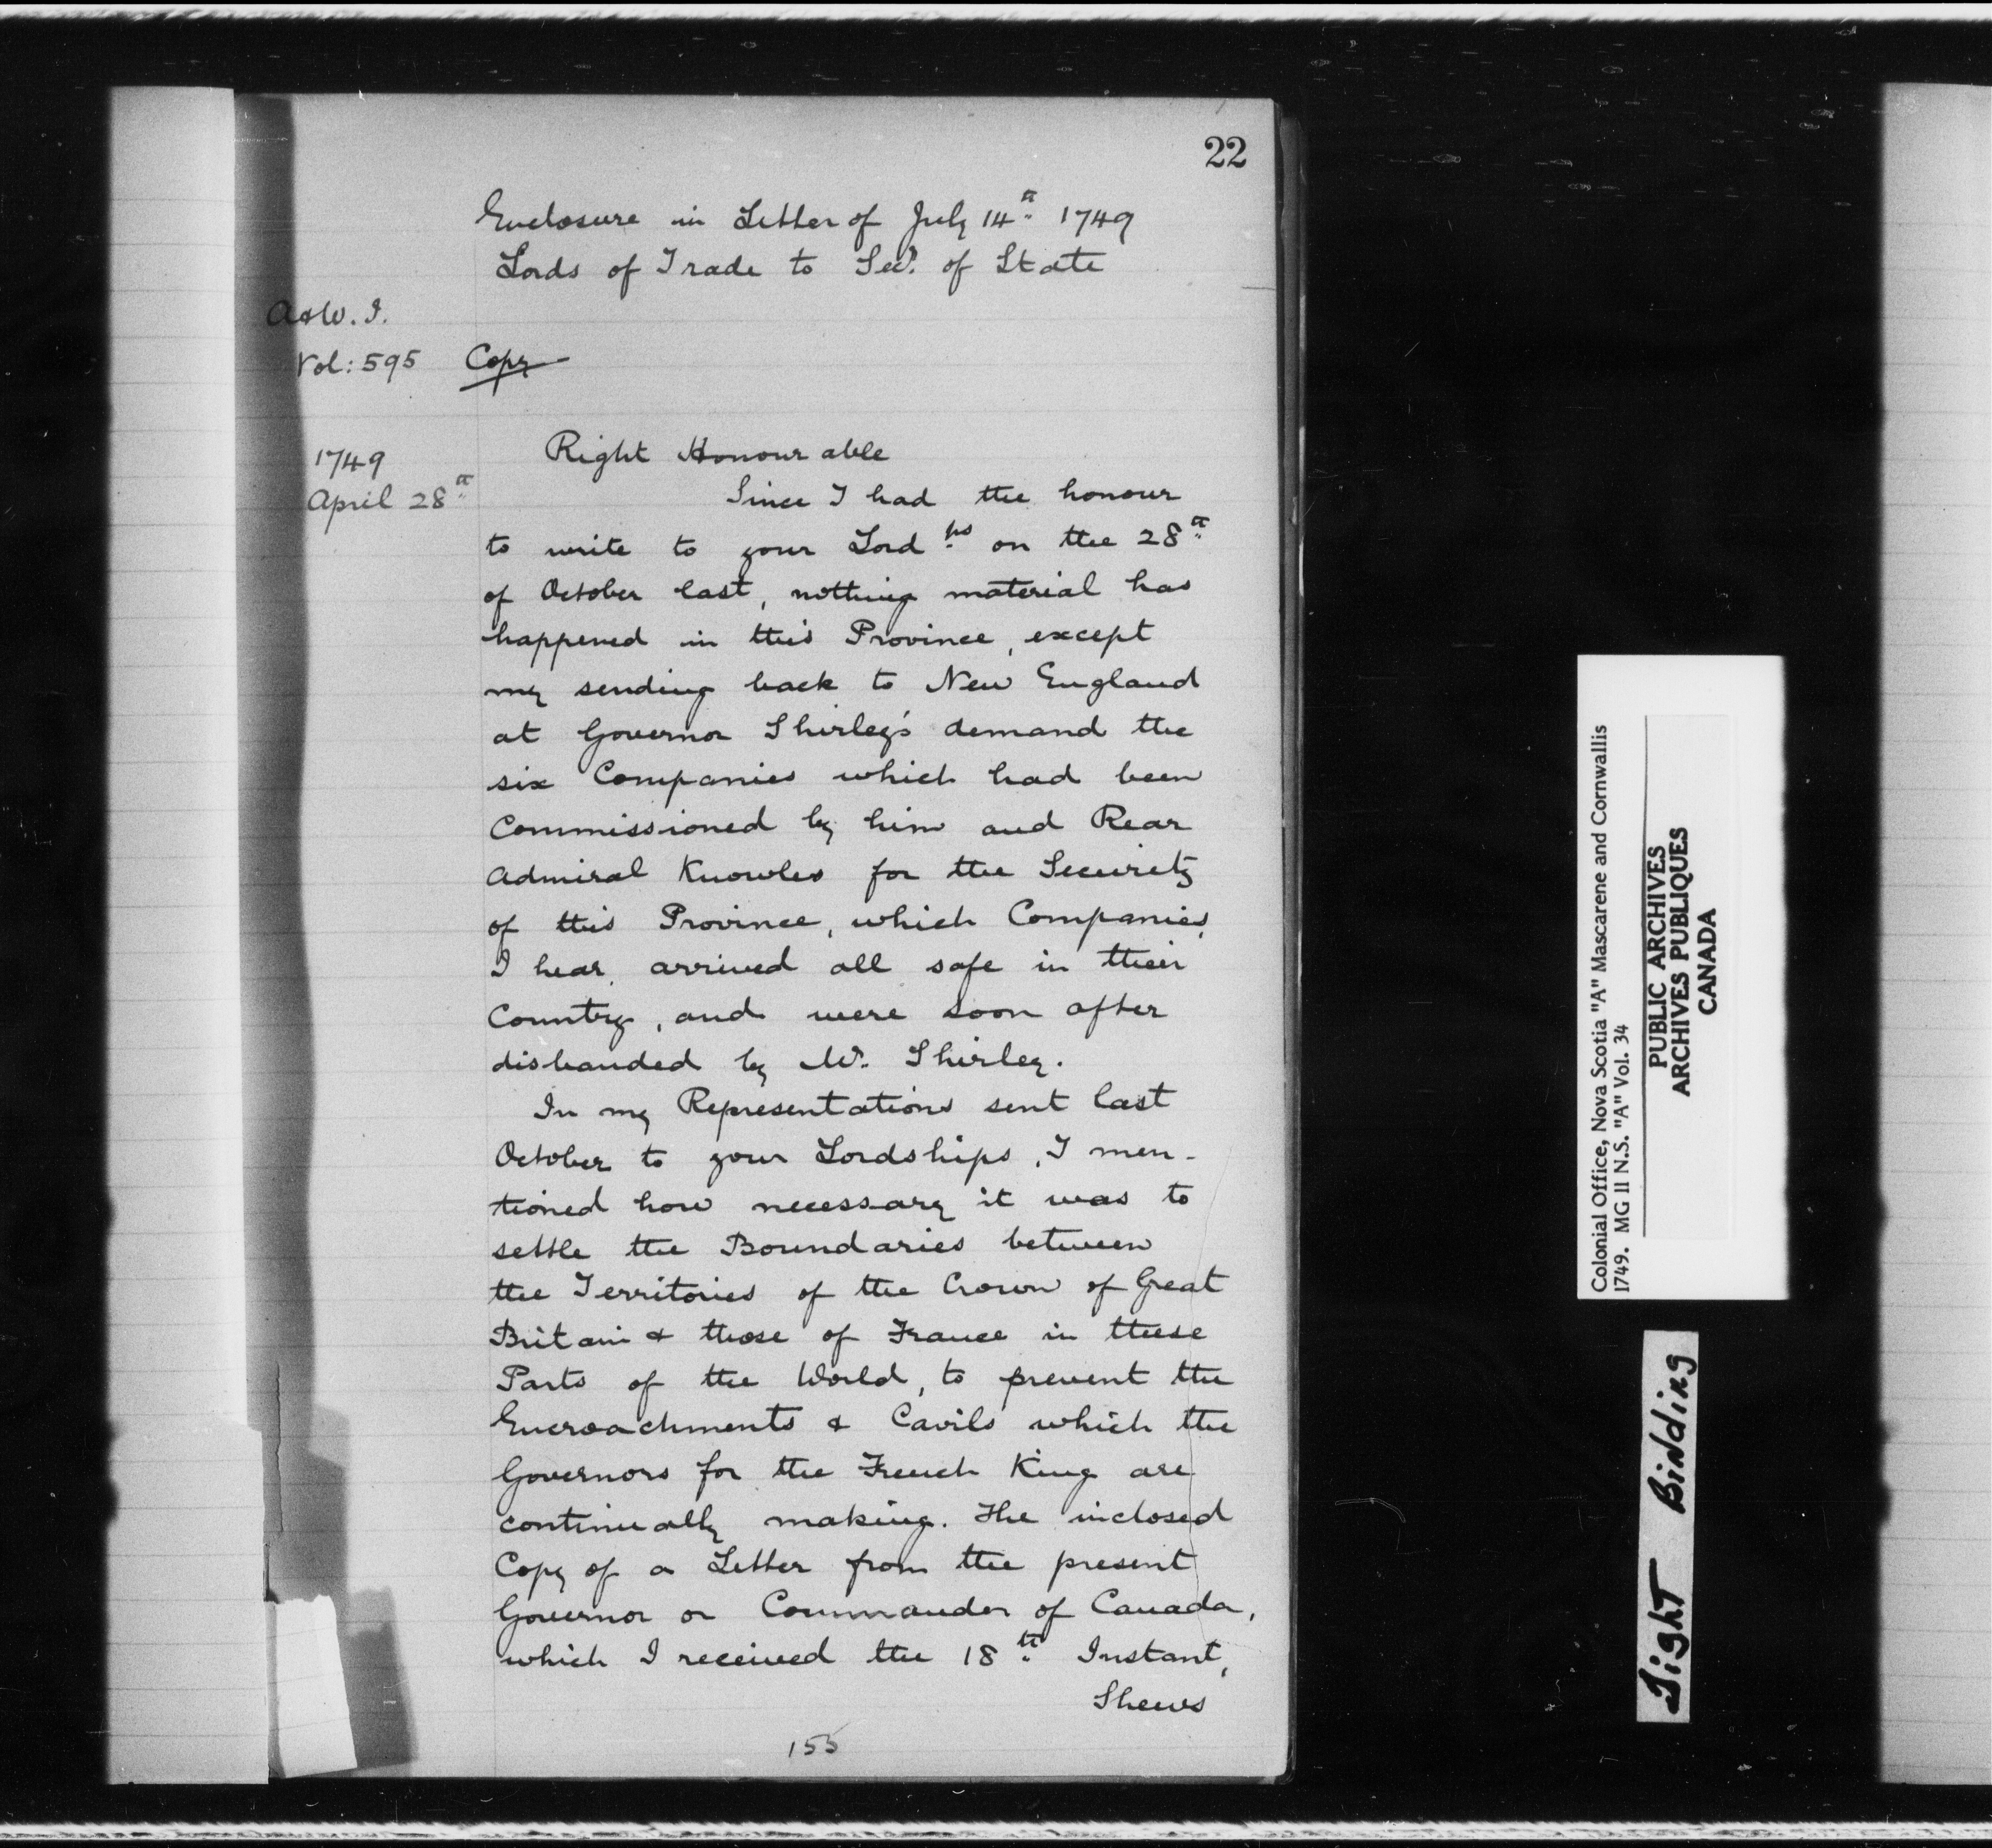 22
Enclosure in Letter of July 14th 1749
Lords of Trade to Secy. of State
A & W. I.
Vol: 595 Copy
1749
April 28th
Right Honourable
Since I had the honour
to write to your Lordps on the 28th
of October last, nothing material has
happened in this Province, except
my sending back to New England
at Governor Shirley's demand the
six Companies which had been
Commissioned by him and Rear
Admiral Knowles for the Security
of this Province, which Companies,
I hear, arrived all safe in their
Country, and were soon after
disbanded by Mr. Shirley.
In my Representations sent last
October to your Lordships, I men-
tioned how necessary it was to
settle the Boundaries between
the Territories of the Crown of Great
Britain & those of France in these
Parts of the World, to prevent the
Encroachments & Cavils which the
Governors for the French King are
continually making. The inclosed
Copy of a Letter from the present
Governor or Commander of Canada,
which I received the 18th Instant,
Shews
155
Colonial Office, Nova Scotia "A" Mascarene and Cornwallis
1749. MG II N.S. "A" Vol. 34
PUBLIC ARCHIVES
ARCHIVES PUBLIQUES
CANADA
Tight Binding